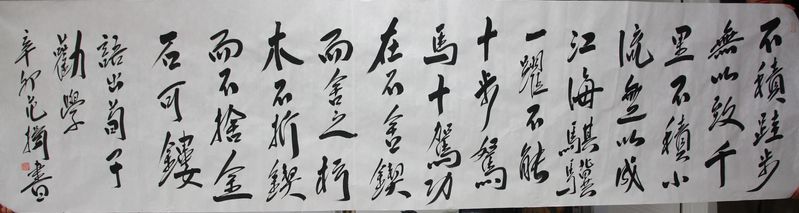 不積跬步
無以致千
里不積小
流無以成
江海騏驥
一躍不能
十步駑
馬十駕功
在不舍鍥
而舍之朽
木不折鍥
而不捨金
石可鏤
語出荀子
勸學
辛卯 書